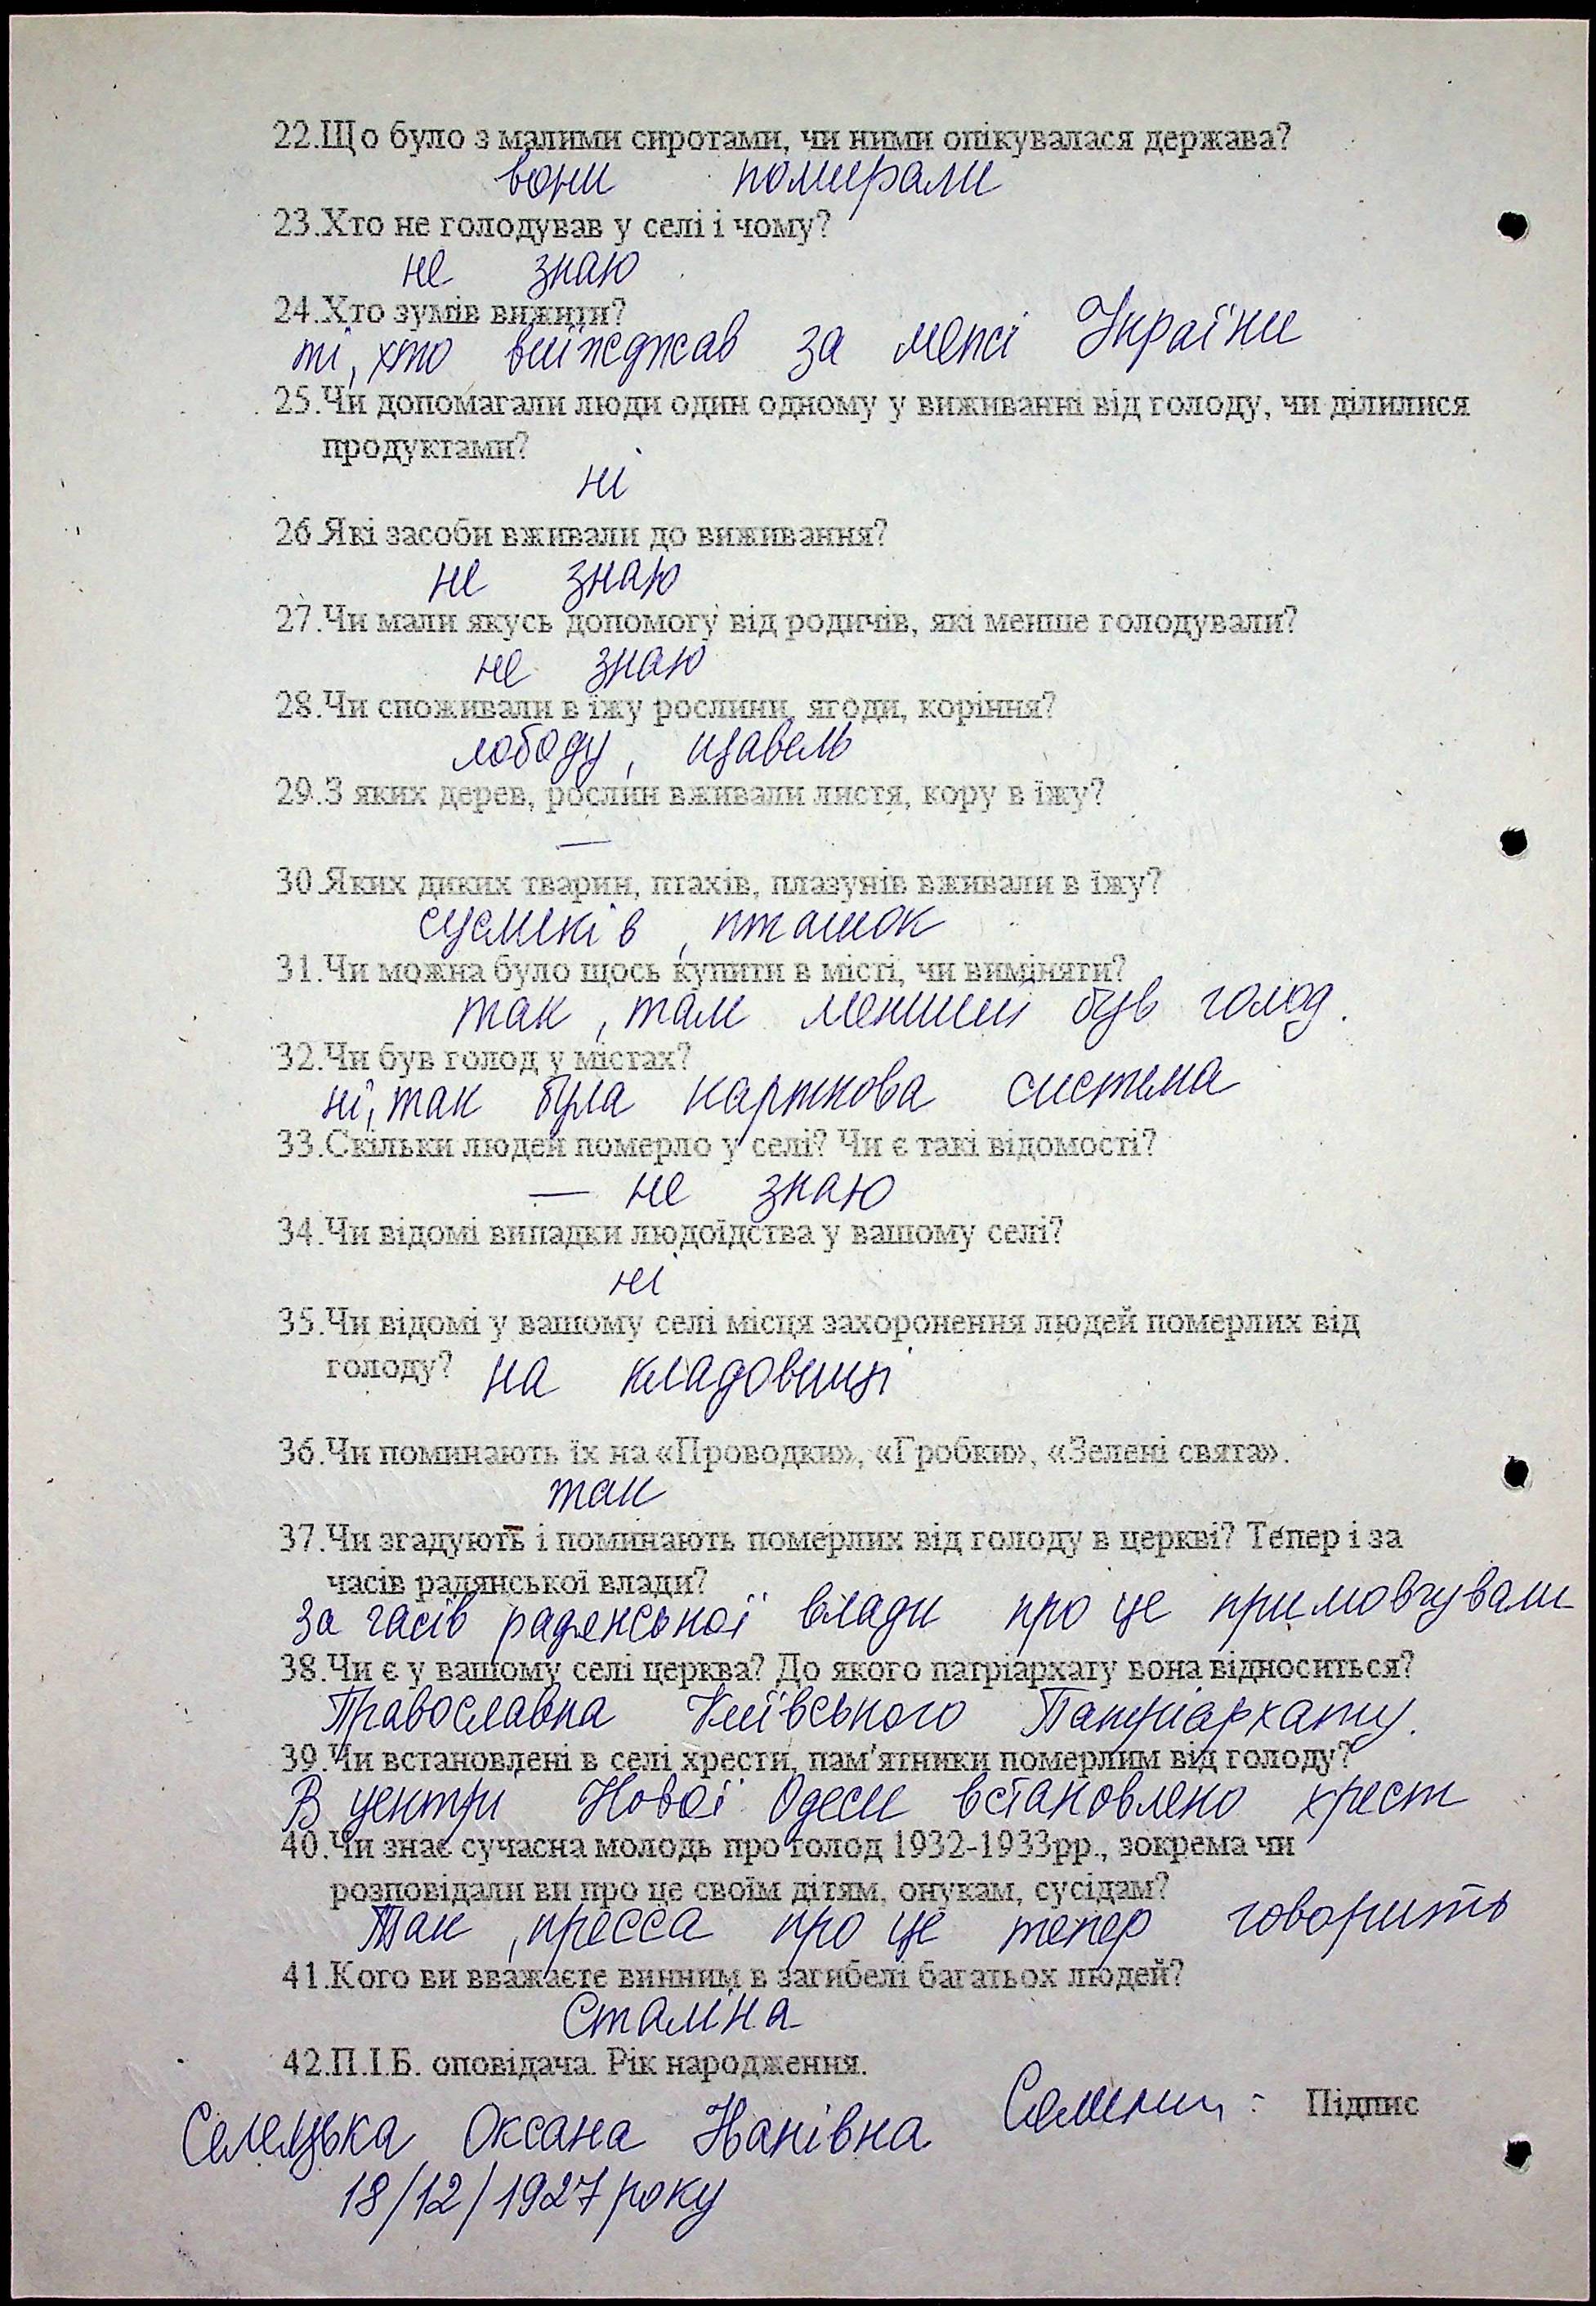 22.Що було з малими сиротами, чи ними опікувалася держава?
вони помирали
23.Хто не голодував у селі і чому?
не знаю
24.Хто зумів вижити?
ті, хто виїжджав за межі України
25.Чи допомагали люди один одному у виживанні від голоду, чи ділилися
продуктами?
ні
26.Які засоби вживали до виживання?
не знаю
27.Чи мали якусь допомогу від родичів, які менше голодували?
не знаю
28.Чи споживали в їжу рослини, ягоди, коріння?
лободу, щавель
29.З яких дерев, рослин вживали листя, кору в їжу?
—
30.Яких диких тварин, птахів, плазунів вживали в їжу?
сусликів, пташок
31.Чи можна було щось купити в місті, чи виміняти?
так, там менший був голод.
32.Чи був голод у містах?
ні, так була карткова система
33.Скільки людей померло у селі? Чи є такі відомості?
— не знаю
34.Чи відомі випадки людоїдства у вашому селі?
ні
35.Чи відомі у вашому селі місця захоронення людей померлих від
голоду? на кладовищі
36.Чи поминають їх на «Проводки», «Гробки», «Зелені свята».
так
37.Чи згадують і поминають померлих від голоду в церкві? Тепер і за
часів радянської влади?
за часів радянської влади про це примовчували
38.Чи є у вашому селі церква? До якого патріархату вона відноситься?
Православна Київського Патріархату.
39.Чи встановлені в селі хрести, пам'ятники померлим від голоду?
В центрі Нової Одеси встановлено хрест
40.Чи знає сучасна молодь про голод 1932-1933рр., зокрема чи
розповідали ви про це своїм дітям, онукам, сусідам?
Так, пресса про це тепер говорить
41.Кого ви вважаєте винним в загибелі багатьох людей?
Сталіна
42.П.І.Б. оповідача. Рік народження.
Підпис
Селецька Оксана Іванівна
18/12/1927 року